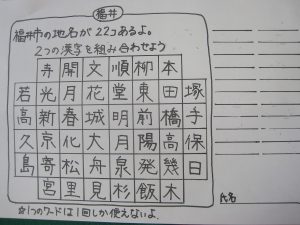 福井
福井市の地名が22こあるよ。
2つの漢字を組み合わせよう
寺 開 文 順 柳 本
若 光 月 花 堂 東 田 塚
高 新 春 城 明 前 橋 手
久 京 化 大 月 陽 高 保
島 寄 松 舟 泉 発 幾 日
宮 里 見 杉 飯 木
※1つのワードは1回しか使えないよ
氏名